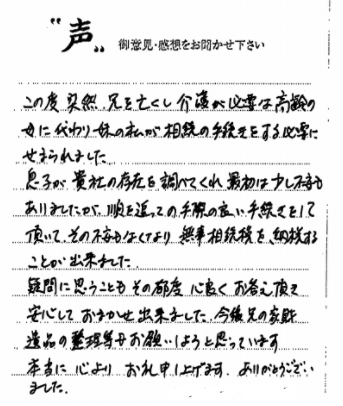 "声"
御意見・感想をお聞かせ下さい
この度 突然、兄を亡くし 介護が必要な高齢の
母に代わり 妹の私が 相続の手続きをする必要に
せまられました。
息子が 貴社の存在を調べてくれ 最初は少し不安も
ありましたが、順を追っての手際の良い手続きをして
頂いて、その不安もなくなり 無事相続税を、納税する
ことが出来ました。
疑問に思うことも その都度 心良く お答え頂き
安心して おまかせ出来ました。今後兄の家財
遺品の整理等お願いしようと思っています
本当に 心より お礼申し上げます。ありがとうござい
ました。